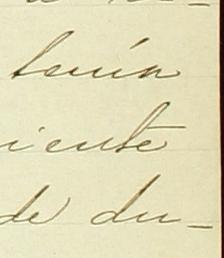 tenía
iente
de du-